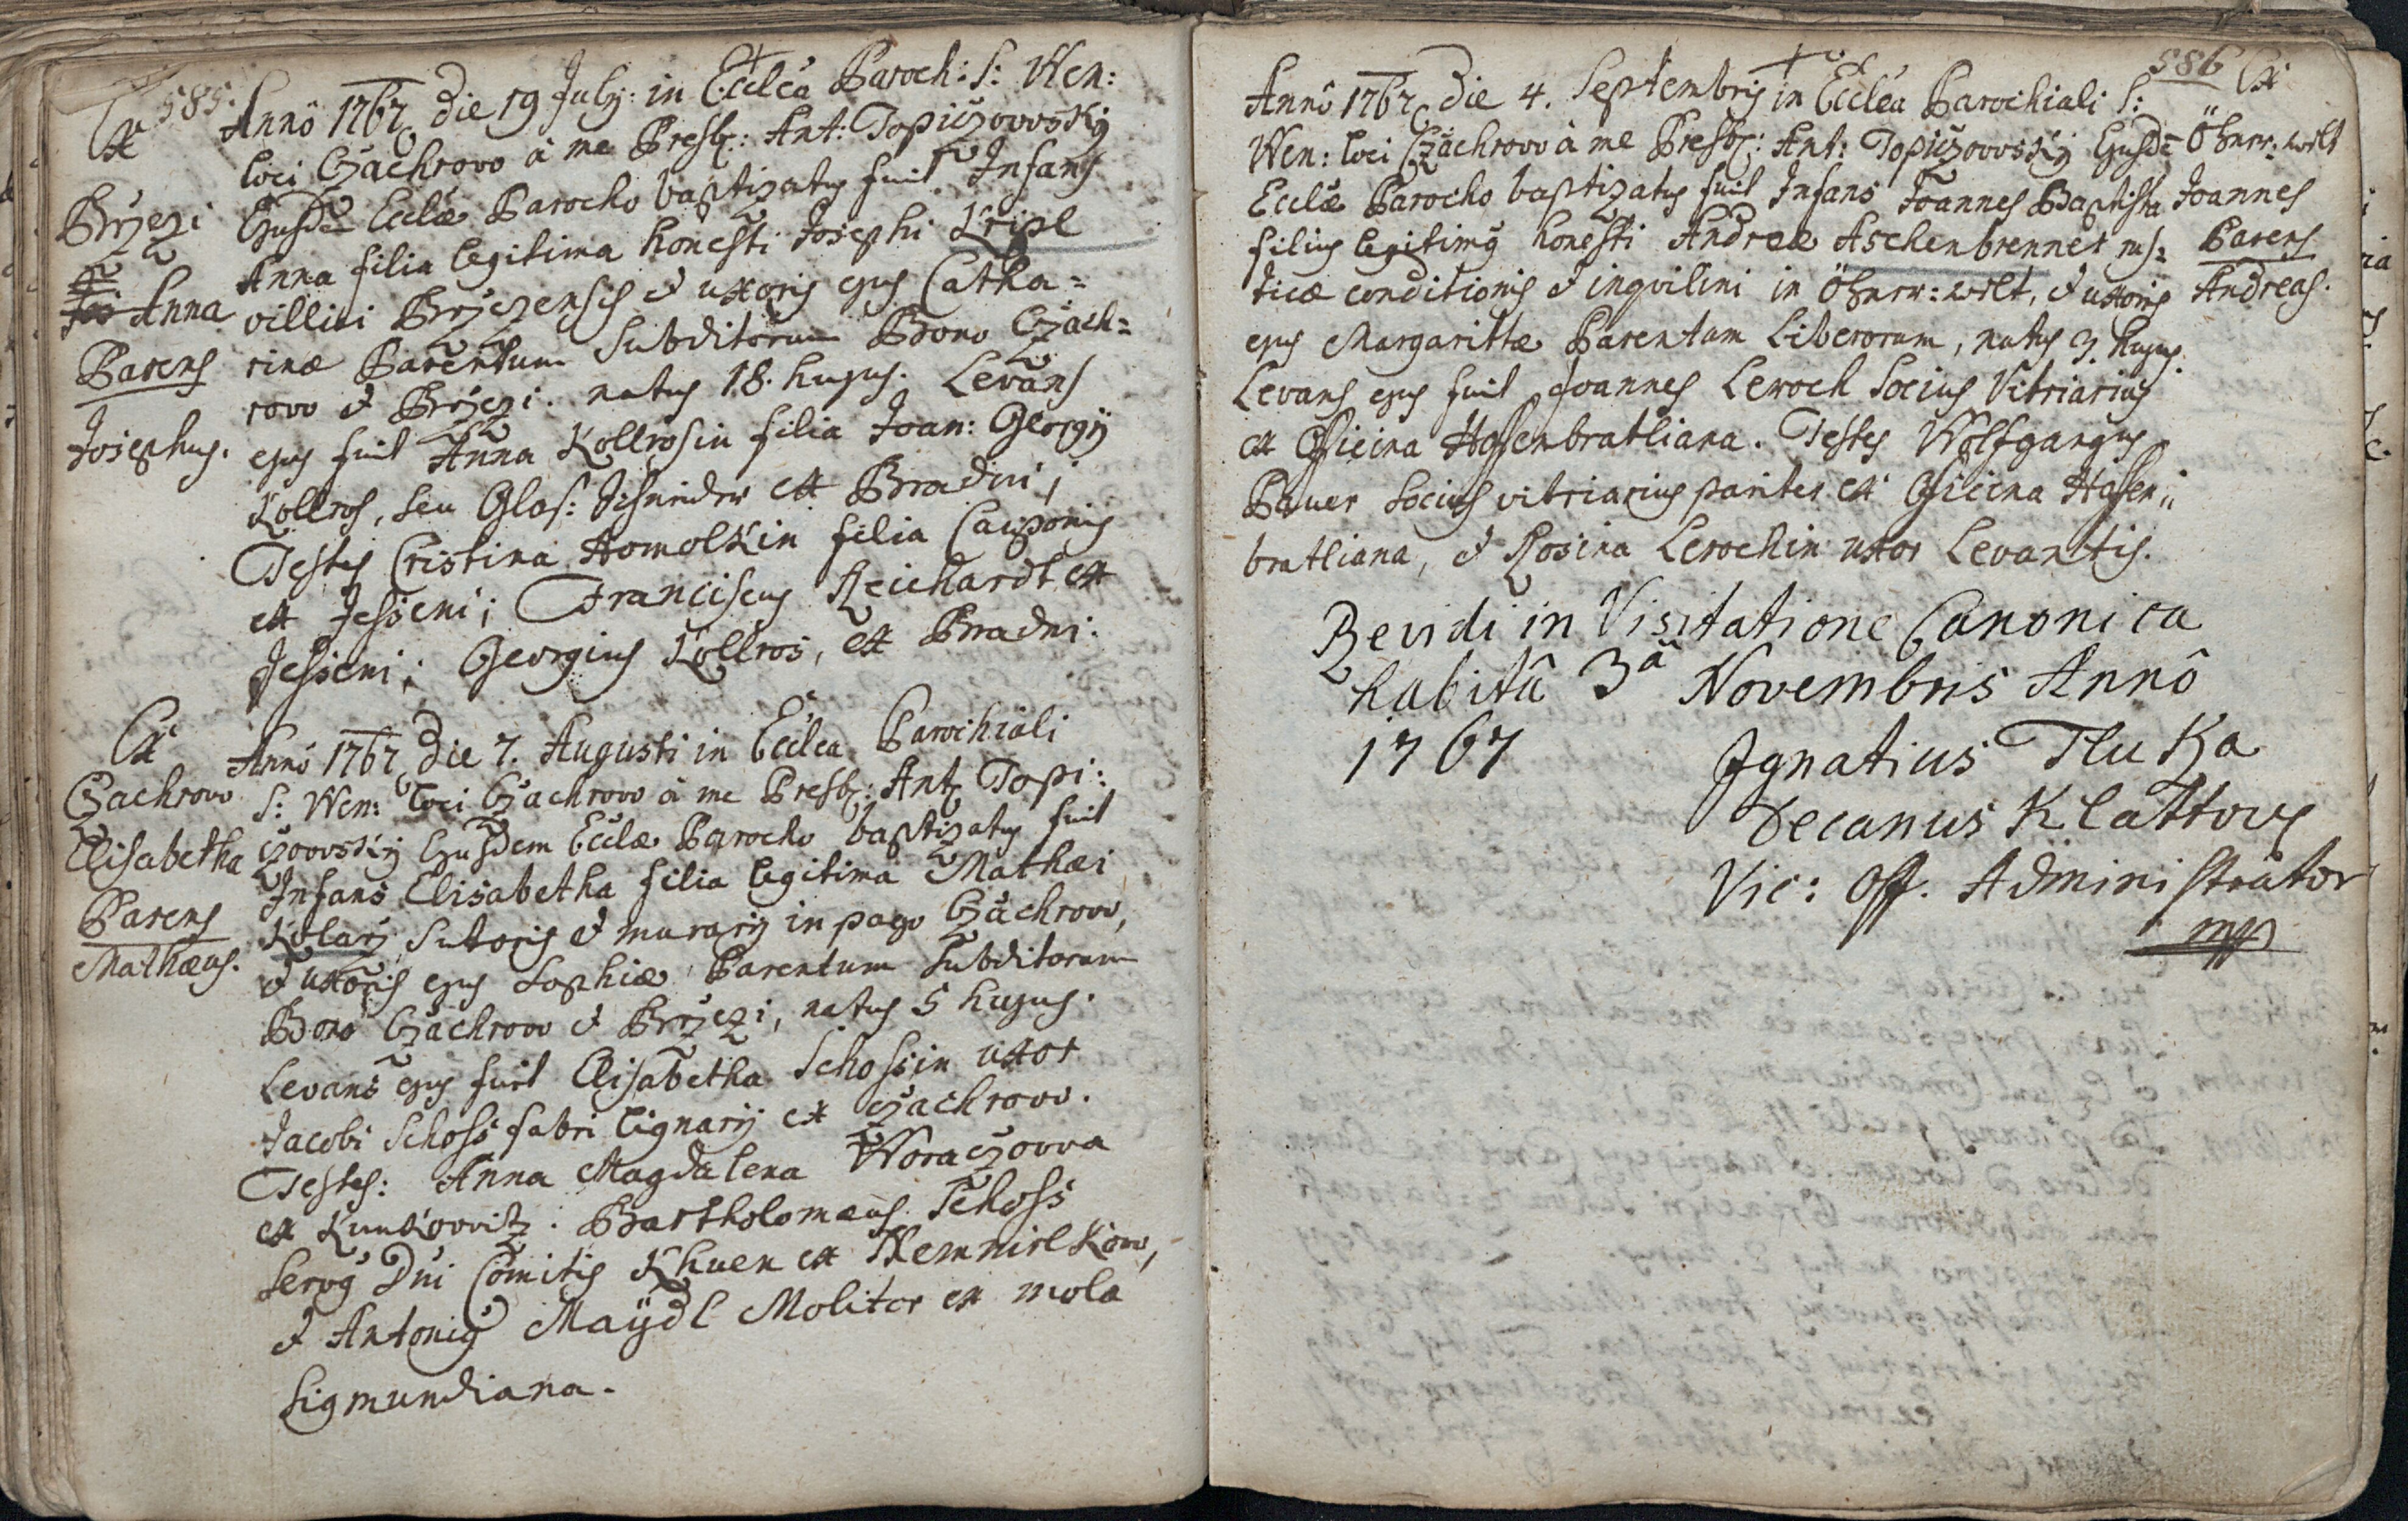 585.
Ex
Brzezi
Anna
Parens
Josephus.
Annô 1767 die 19 July: in Ecclea Paroch: S: Wen:
loci Czachrovo à me Presb: Ant: Topiczovvsky
Ejusdē Ecclæ Parocho baptizatus fuit Infans
Anna filia legitima honesti Josephi Kripl
villici Brzezensis et uxoris ejus Catha=
rinæ Parentum Subditorum Bono Czach=
rovo et Brzezi. natus 18. hujus. Levans
ejus fuit Anna Kollrosin filia Joan: Georgÿ
Kollros, seu Glas: Schneider ex Bradni;
Testes Cristina Homolkin filia Cauponis
ex Jesseni; Franciscus Reichardt ex
Jesseni; Georgius Kollros, ex Bradni.
Ex
Czachrovo
Elisabetha
Parens
Mathæus.
Annô 1767 die 7. Augusti in Ecclea Parochiali
S: Wen: loci Czachrovo à me Presb: Ant Topi:
czovvsky Ejusdem Ecclæ Parocho baptizatus fuit
Infans Elisabetha filia legitima Mathæi
Kolarz Sutoris et murarÿ in pago Czachrovo,
et uxoris ejus Sophiæ Parentum Subditorum
Bono Czachrovo et Brzezi, natus 5 hujus.
Levans ejus fuit Elisabetha Schossin uxor
Jacobi Schoss fabri lignarÿ ex Czachrovo.
Testes: Anna Magdalena Woraczovva
ex Kunkovvitz. Bartholomæus Schoss
servus Dni Comitis Khuen ex Nemnirlkow,
et Antonius Maÿdl Molitor ex mola
Sigmundiana.
586
Ex
Öhnrr: wilt
Joannes
Parens
Andreas.
Annô 1767 die 4. Septembris in Ecclea Parochiali S:
Wen: loci Czachrovo à me Presb: Ant: Topiczovvsky Ejusdē
Ecclæ Parocho baptizatus fuit Infans Joannes Baptista
filius legitimus honesti Andreæ Aschenbrenner rus=
ticæ conditionis et inquilini in Öhnrr: wilt, et uxoris
ejus Margarittæ Parentum Liberorum, natus 3. hujus.
Levans ejus fuit Joannes Leroch Socius Vitriarius
ex Officina Hasenbratliana. Testes Wolfgangus
Pauer Socius vitriarius pariter ex Officina Hasen:
bratliana, et Rosina Lerochin uxor Levantis.
Revidi in Visitatione Canonica
habitâ 3ª Novembris Annô
1767
Ignatius Tluka
Decanus Klattovs
Vic: Off. Administrator
mp